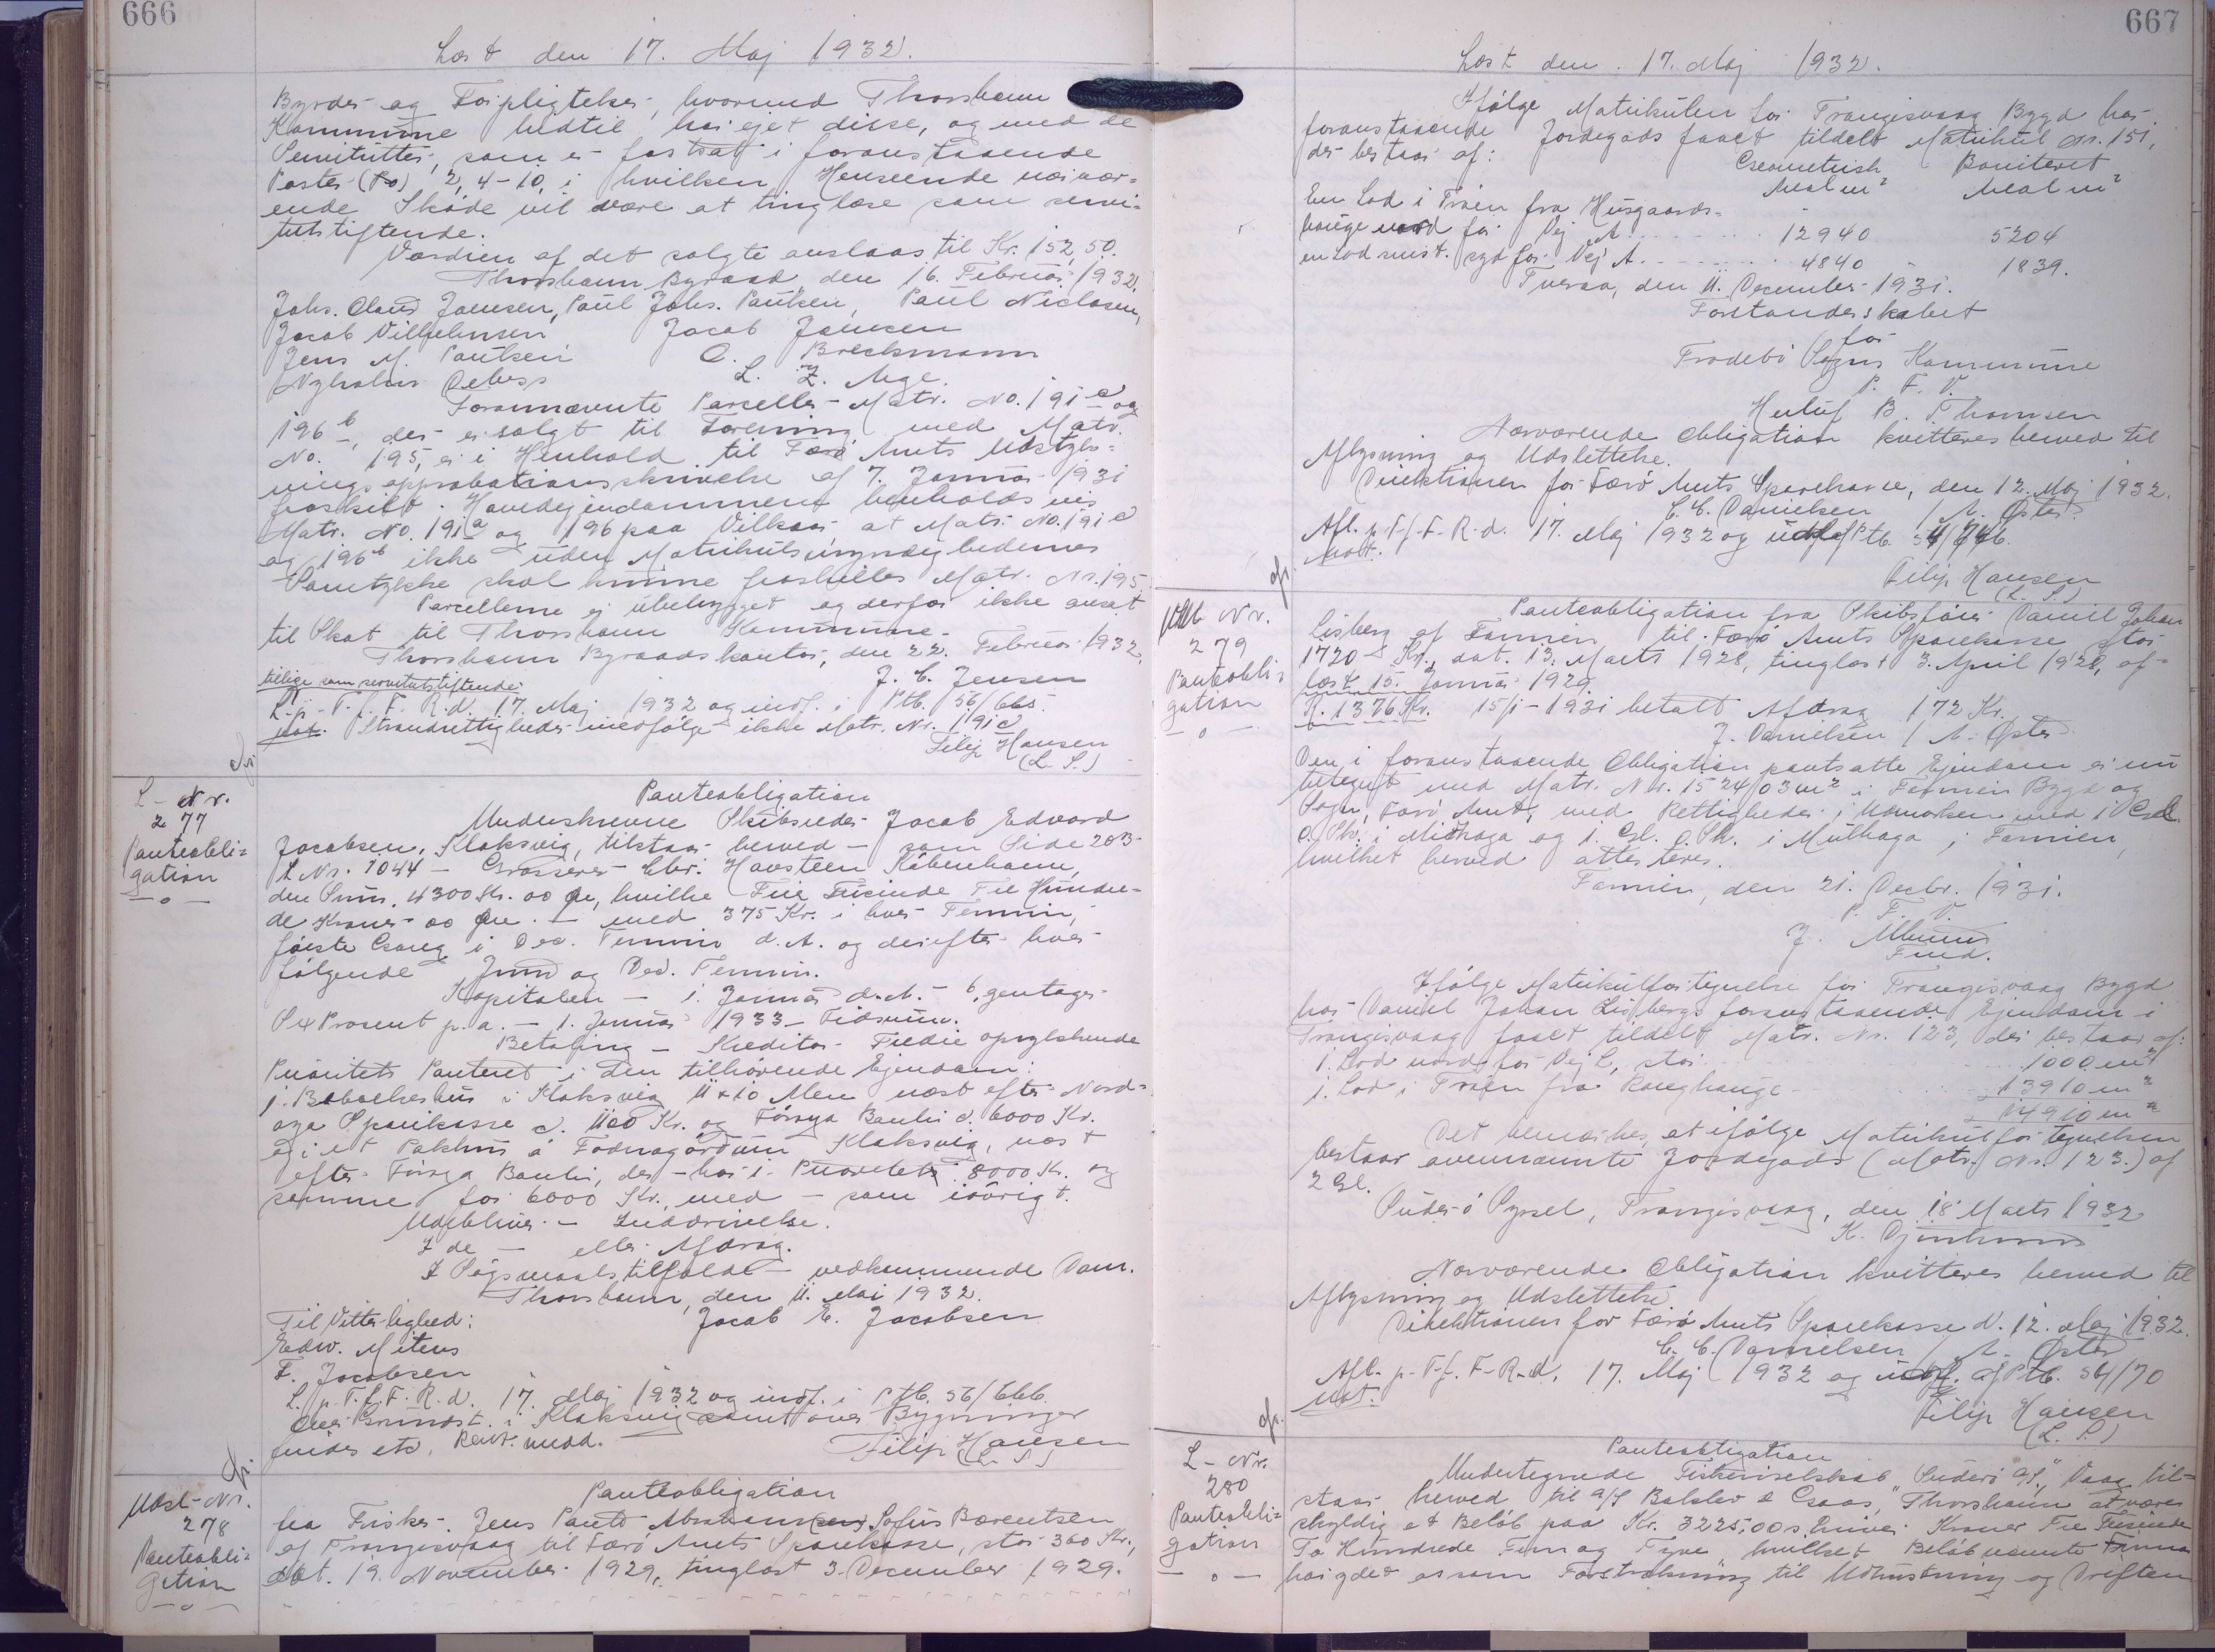 666
Læst den 17. Maj 1932.
Byrder og Forpligtelser, hvormed Thorshavn
Kommune hidtil har ejet disse, og med de
Servitutter, som er fastsat i foranstaaende
Poster (Po) 2, 4-10, i hvilken Henseende nærvær=
ende Skøde vil være at tinglæse som servi=
tutstiftende.
Værdien af det solgte anslaas til Kr. 152,50.
Thorshavn Byraad, den 16. Februar 1932.
Johs. Oland Joensen, Poul Johs. Paulsen, Poul Niclasen,
Jacob Vilhelmsen Jacob Joensen
Jens M. Poulsen O. Breckmann
Nyholm Debess L. Z.
Forannævnte Parceller Matr. No. 191 c og
196 b, der er solgt til Forening med Matr.
No. 195, er i Henhold til Færø Amts Udstyk=
ningsapprobationsskrivelse af 7. Januar 1931
fraskilt Hovedejendommene henholdsvis
Matr. No. 191 a og 196 paa Vilkaar at Matr. No. 191 c
og 196 b ikke uden Matrikulsmyndighedernes
Samtykke skal kunne fraskilles Matr. Nr. 195
Parcellerne er ubebygget og derfor ikke ansat
til Skat til Thorshavn Kommune.
Thorshavn Byraadskontor, den 22. Februar 1932.
J. C. Jensen
tillige som servitutstiftende
L. p. T. f. F. R. d. 17. Maj 1932 og indf. i Ptb. 56/665.
Not. Strandrettigheder medfølger ikke Matr. Nr. 191 c
Filip Hansen
(L. S.)
L-Nr.
277
Panteobli=
gation
— o —
Panteobligation
Underskrevne Skibsreder Jacob Edvard
Jacobsen, Klaksvig, tilstaar herved — som Side 203
L Nr. 1044 — Grosserer Chr. Havsteen København,
den Sum. 4300 Kr. 00 Øre, hvilke Fire Tusinde Tre Hundre=
de Kroner 00 Øre. — med 375 Kr. i hver Termin,
første Gang i Dec. Termin d. A. og derefter hver
følgende Juni og Dec. Termin.
Kapitalen — 1. Januar d. A. — 6, gentager
Sex Procent p. a. — 1. Januar 1933 — Tidsrum.
Betaling — Kreditor Tredie oprykkende
Prioritets Panteret i den tilhørende Ejendom:
1. Beboelseshus i Klaksvig 11 x 10 Alen næst efter Nord=
oya Sparikassa c. 1100 Kr. og Føroya Banki c. 6000 Kr.
og i et Pakhus á Fodnagørdum Klaksvig, næst
efter Føroya Banki, der — har 1. Prioritets 8000 Kr. og
samme for 6000 Kr., med — som iøvrigt.
Udebliver — Inddrivelse.
I de — eller Afdrag.
I Søgsmaalstilfælde — vedkommende Dom.
Thorshavn, den 11. Maj 1932.
Til Vitterlighed: Jacob E. Jacobsen
Edw. Mitens
F. Jacobsen
L. p. T. f. F. R. d. 17. Maj 1932 og indf. i Ptb. 56/666.
Over Grundst. i Klaksvig samt over Bygninger
findes etc. Reut. medd.
Filip Hansen
(L. S.)
Udsl-Nr.
278
Panteobli=
gation
— o —
Panteobligation
fra Fisker Jens Sofus Bærentsen
af Trangisvaag til Færø Amts Sparekasse, stor 360 Kr.,
dat. 19. November 1929, tinglæst 3. December 1929.
667
Læst den 17. Maj 1932.
Ifølge Matrikulen for Trangisvaag Bygd har
foranstaaende Jordegods faaet tildelt Matrikul Nr. 151,
der bestaar af: Geometrisk Boniteret
Areal m² Areal m²
En Lod i Trøen fra Husgaards=
hauge nord for Vej A. 12940 5204
en Lod smst. syd for Vej A. 4840 1839.
Tveraa, den 11. December 1931.
Forstanderskabet
for
Frodebø Sogns Kommune
P. F. V.
Herluf B. Thomsen
Nærværende Obligation kvitteres herved til
Aflysning og Udslettelse.
Direktionen for Færø Amts Sparekasse, den 12. Maj 1932.
C. C. Danielsen / A. Øster
Afl. p. T. f. F. R. d. 17. Maj 1932 og udsl. af Ptb. 54/746.
Not.
Filip Hansen
(L. S.)
Udsl Nr.
279
Panteobli=
gation
— o —
Panteobligation fra Skibsfører Daniel Johan
Lisberg af Famien til Færø Amts Sparekasse stor
1720 Kr., dat. 13. Marts 1928, tinglæst 3. April 1928, af=
læst 15. Januar 1929.
R. 1376 Kr. 15/1 - 1931 betalt Afdrag 172 Kr.
J. Danielsen / A. Øster
Den i foranstaaende Obligation pantsatte Ejendom er nu
betegnet med Matr. Nr. 15 2403 m² i Famien Bygd og
Sogn, Færø Amt, med Rettigheder i Udmarken med 1 Gl.
0 Sk. i Mithaga og 1 Gl. 0 Sk. i Mulhaga i Famien,
hvilket herved attesteres.
Famien, den 21. Decbr. 1931.
P. F. V.
J.
Ifølge Matrikulfortegnelse for Trangisvaag Bygd
har Daniel Johan Lisbergs foranstaaende Ejendom i
Trangisvaag faaet tildelt Matr. Nr. 123, der bestaar af:
1. Lod nord for Vej L, stor 1000 m²
1. Lod i Trøen fra Ranghauge - 13910 m²
14910 m²
Det bemærkes, at ifølge Matrikulfortegnelsen
bestaar ovennævnte Jordegods (Matr. Nr. 123.) af
2 Gl.
Suderø Syssel, Trangisvaag, den 18 Marts 1932
K. Djurhuus
Nærværende Obligation kvitteres herved til
Aflysning og Udslettelse
Direktionen for Færø Amts Sparekasse d. 12. Maj 1932.
C. C. Danielsen / A. Øster
Afl. p. T. f. F. R. d. 17. Maj 1932 og udsl. af Ptb. 54/70
Not.
Filip Hansen
(L. S.)
L-Nr.
280
Panteobli=
gation
— o —
Panteobligation
Undertegnede Fiskeriselskab "Suderø A/S", Vaag til=
staar herved til A/S Balslev & Gaas, Thorshavn at være
skyldig et Beløb paa Kr. 3225,00 skriver Kroner Tre Tusinde
To Hundrede Fem og Tyve hvilket Beløb nævnte Firma
har ydet os som Forstrækning til Udrustning og Driften